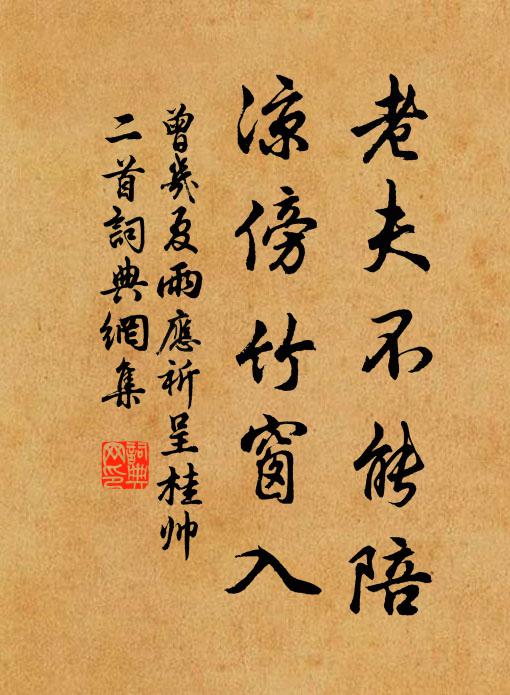 老夫不能陪
凉傍竹窗入
曾幾夏雨應祈呈桂帅
二首詞典網集
詞典网印